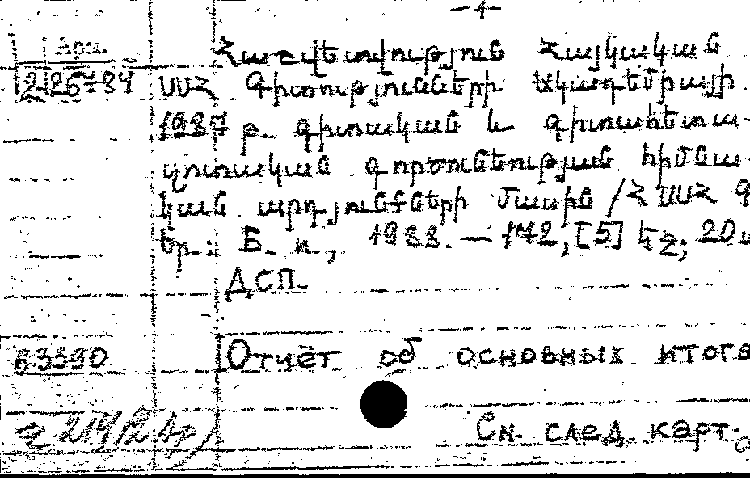 -4-
Հաշվետվություն Հայկական
ՍՍՀ Գիտությունների Ակադեմիայի
1987 թ. գիտական և գիտահետա-
զոտական գործունեության հիմնա-
կան արդյունքների մասին /ՀՍՍՀ Գ
Եր.: Б. и., 1988. — 142, [5] էջ; 20
ДСП.
63390 Отчёт об основных итога
См. след. карт.